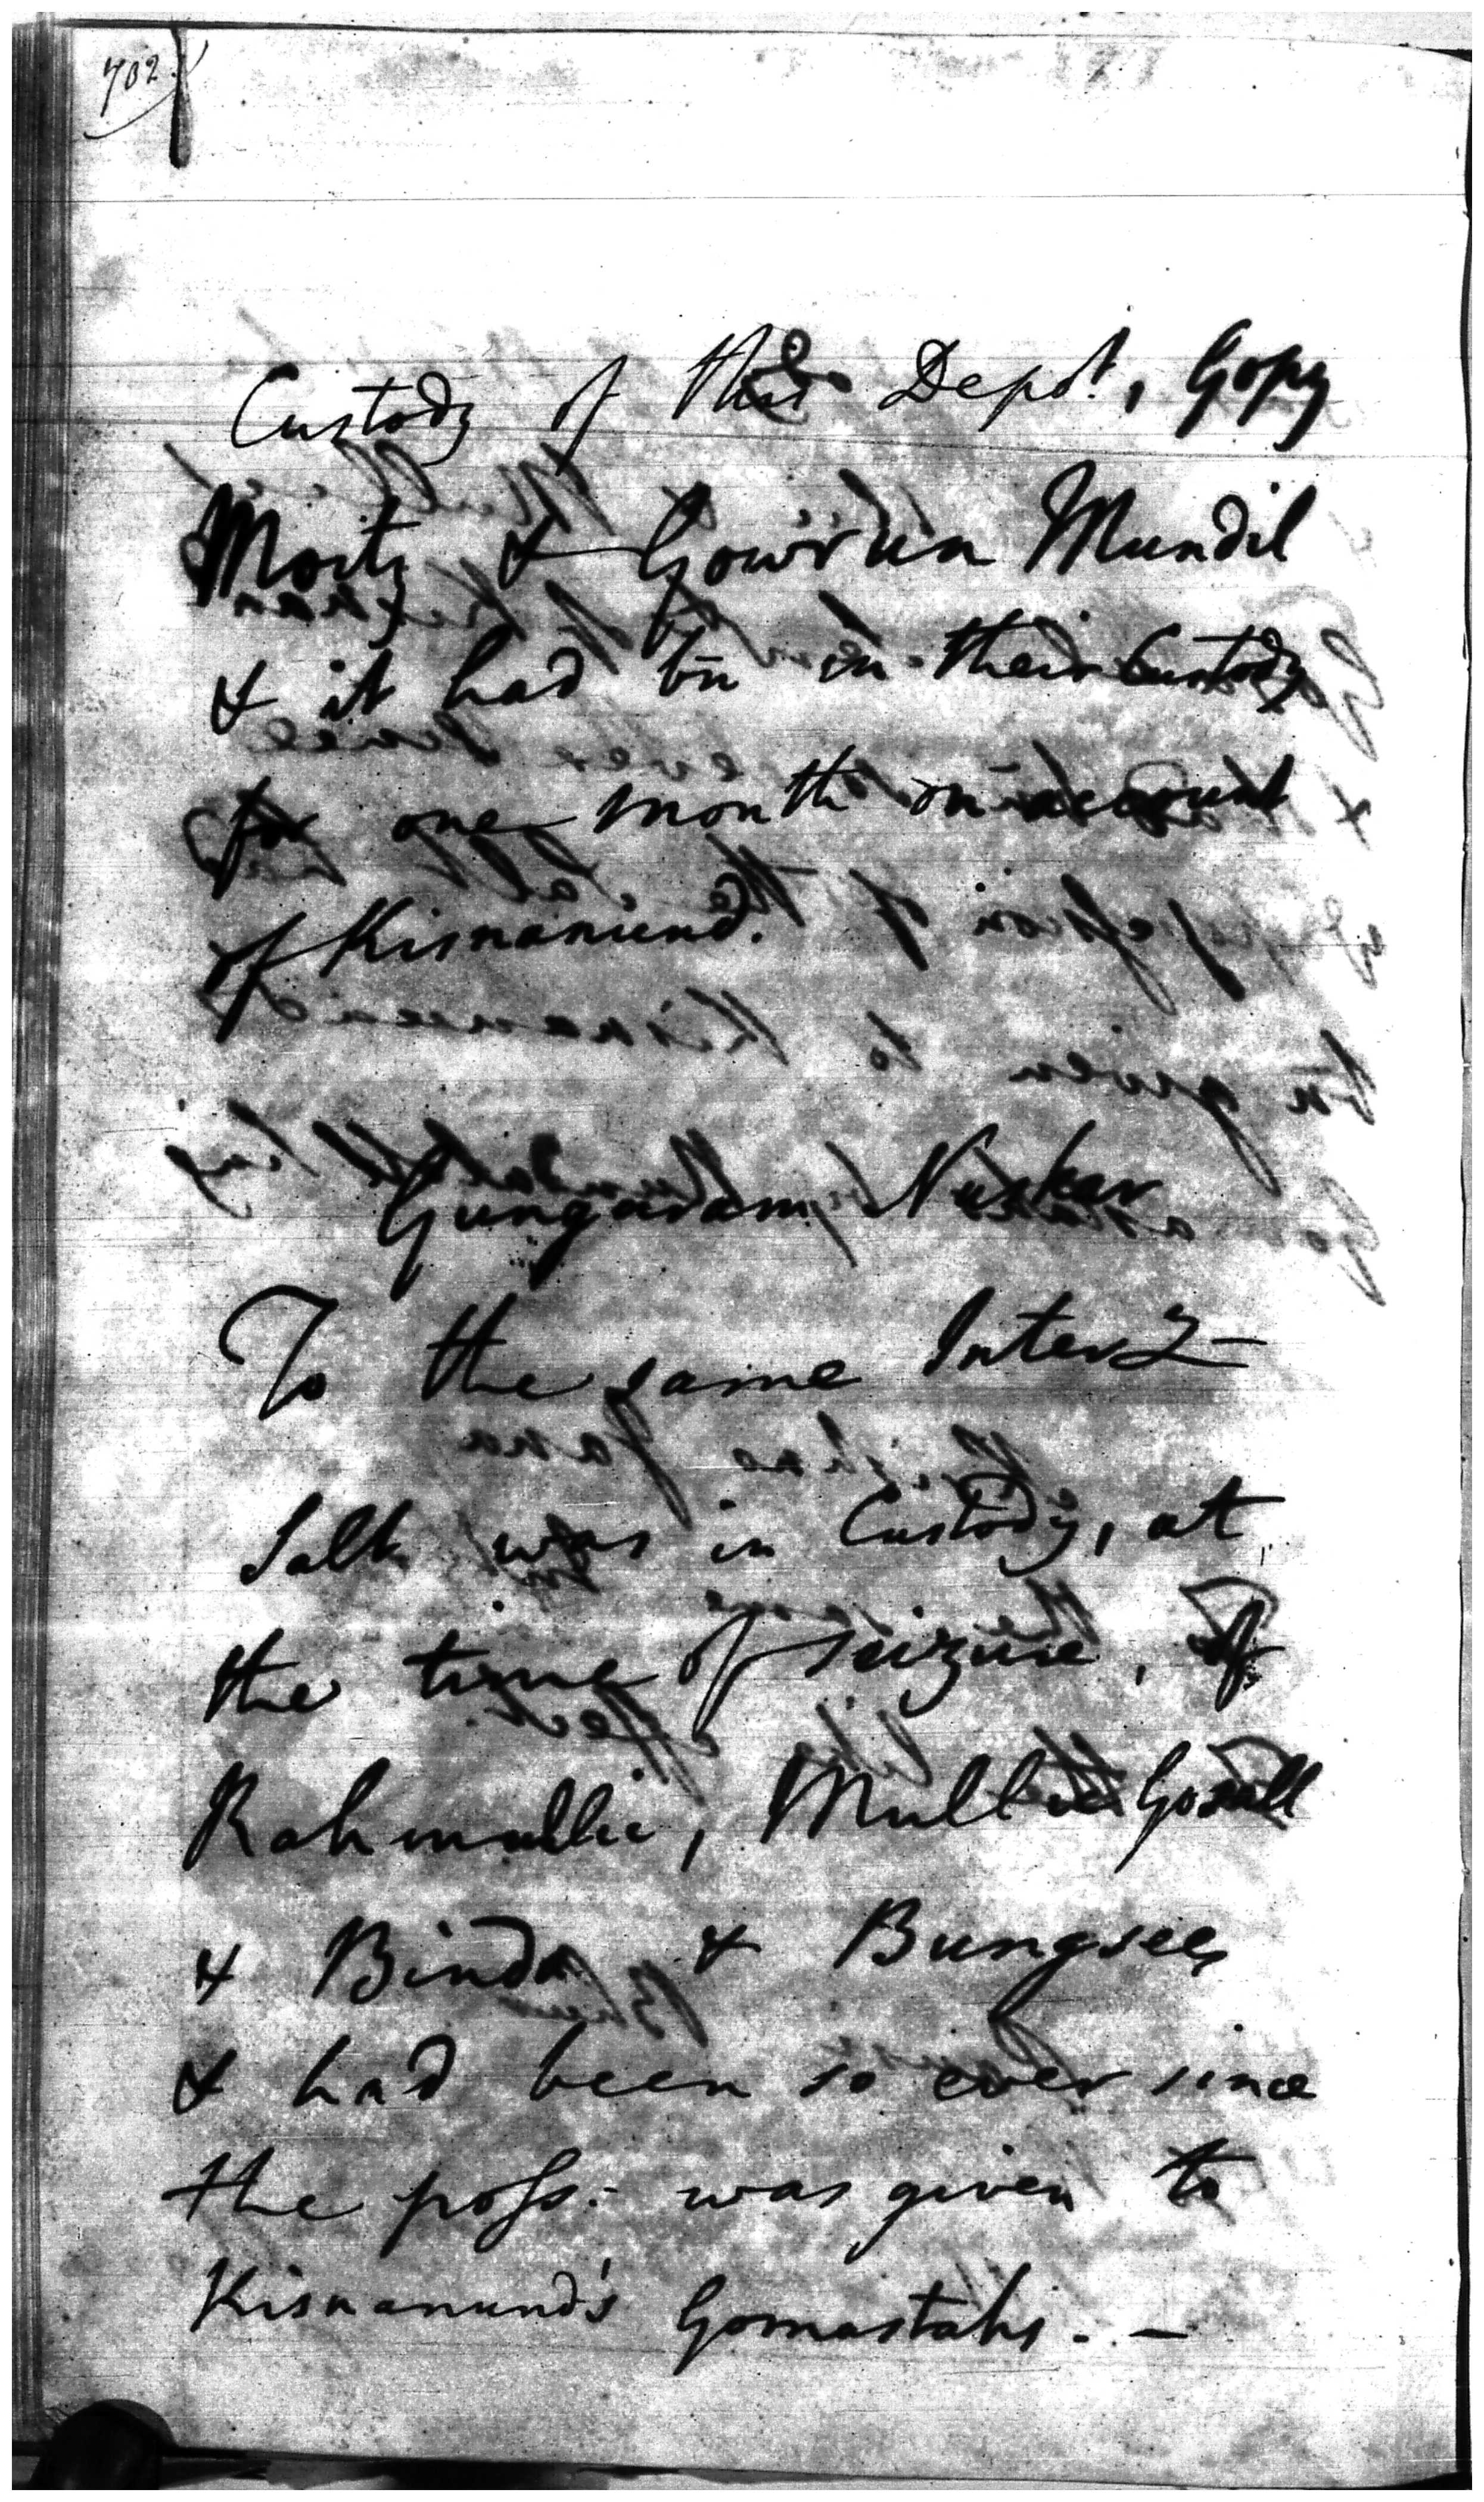 702
Custody of this Depot, Gopy
Moity & Gowrun Mundil
& it had bn in their Custody
for one month on account
of Kisnanund.
Gungaram Nuskar
To the same Inter2
Salt was in Custody, at
the time of seizure, of
Rahmullie, Mullic Gozall
& Binda & Bungsee
& had been so ever since
the poss:- was given to
Kisnanund's Gomastahs. -